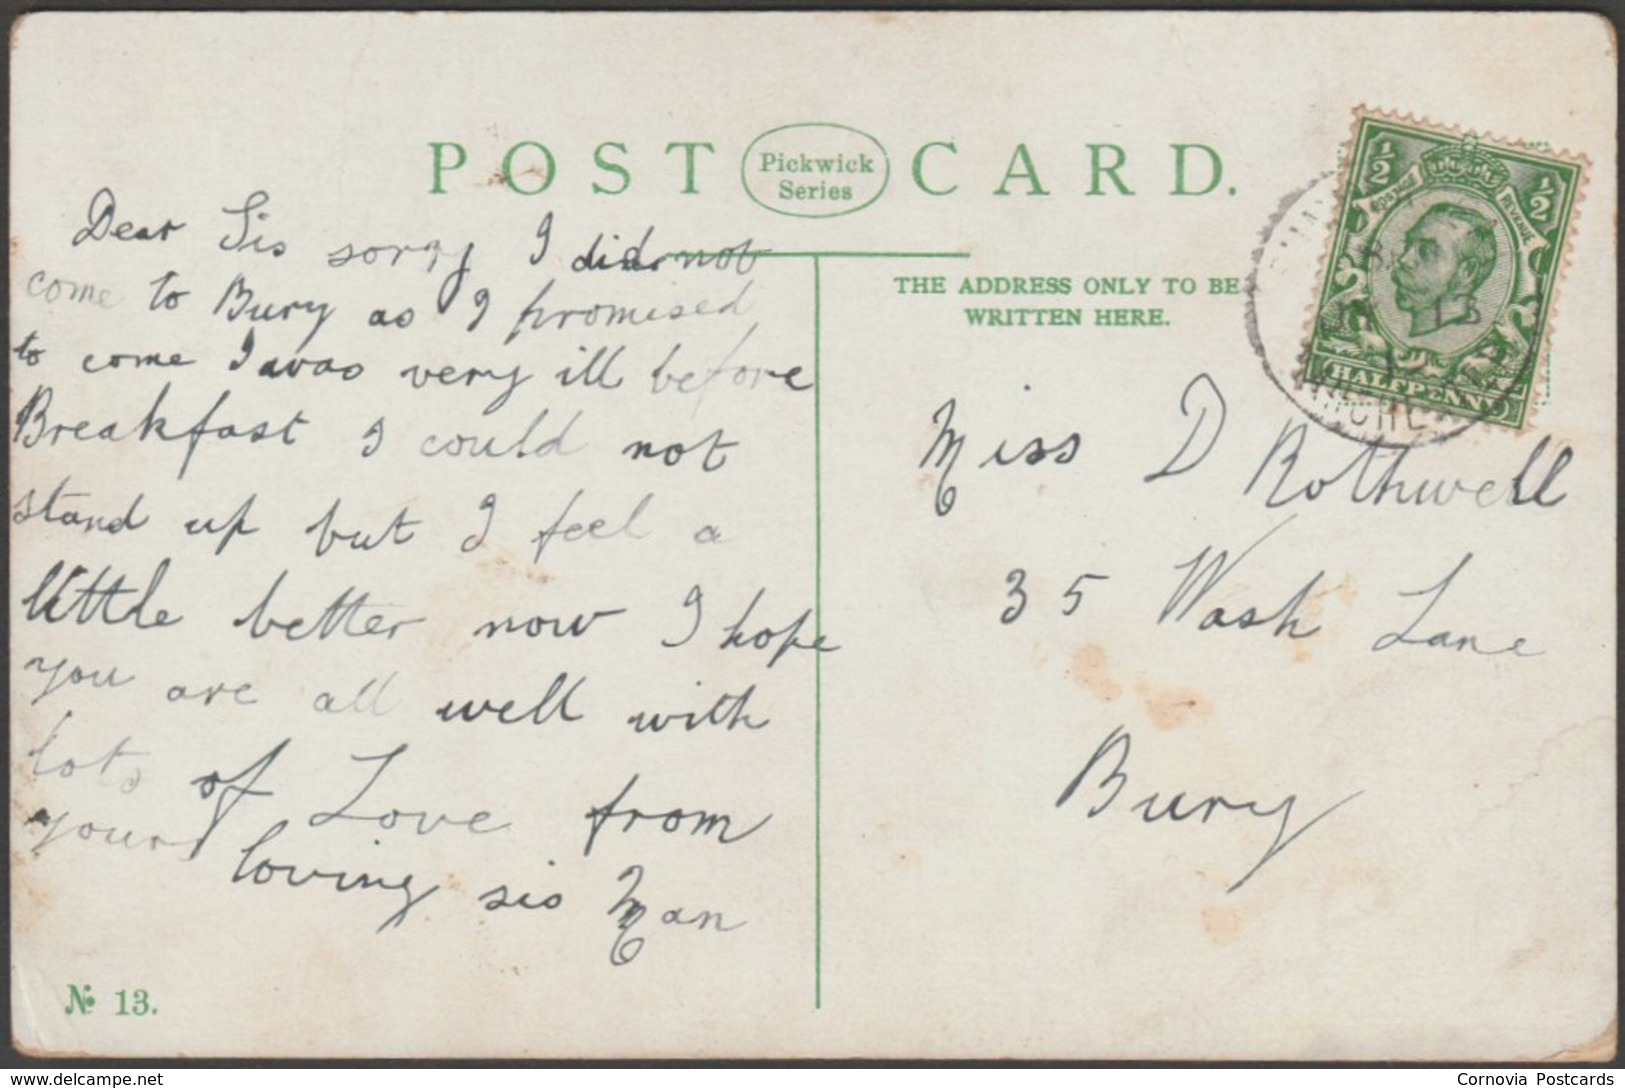 POST CARD.
Pickwick
Series
THE ADDRESS ONLY TO BE
WRITTEN HERE.
Dear Sis sorry I did not
come to Bury as I promised
to come I was very ill before
Breakfast I could not
stand up but I feel a
little better now I hope
you are all well with
lots of Love from
your loving sis Man
Miss D Rothwell
35 Wash Lane
Bury
½ ½
POSTAGE REVENUE
HALFPENNY
13
No 13.
delcampe.net
Cornovia Postcards